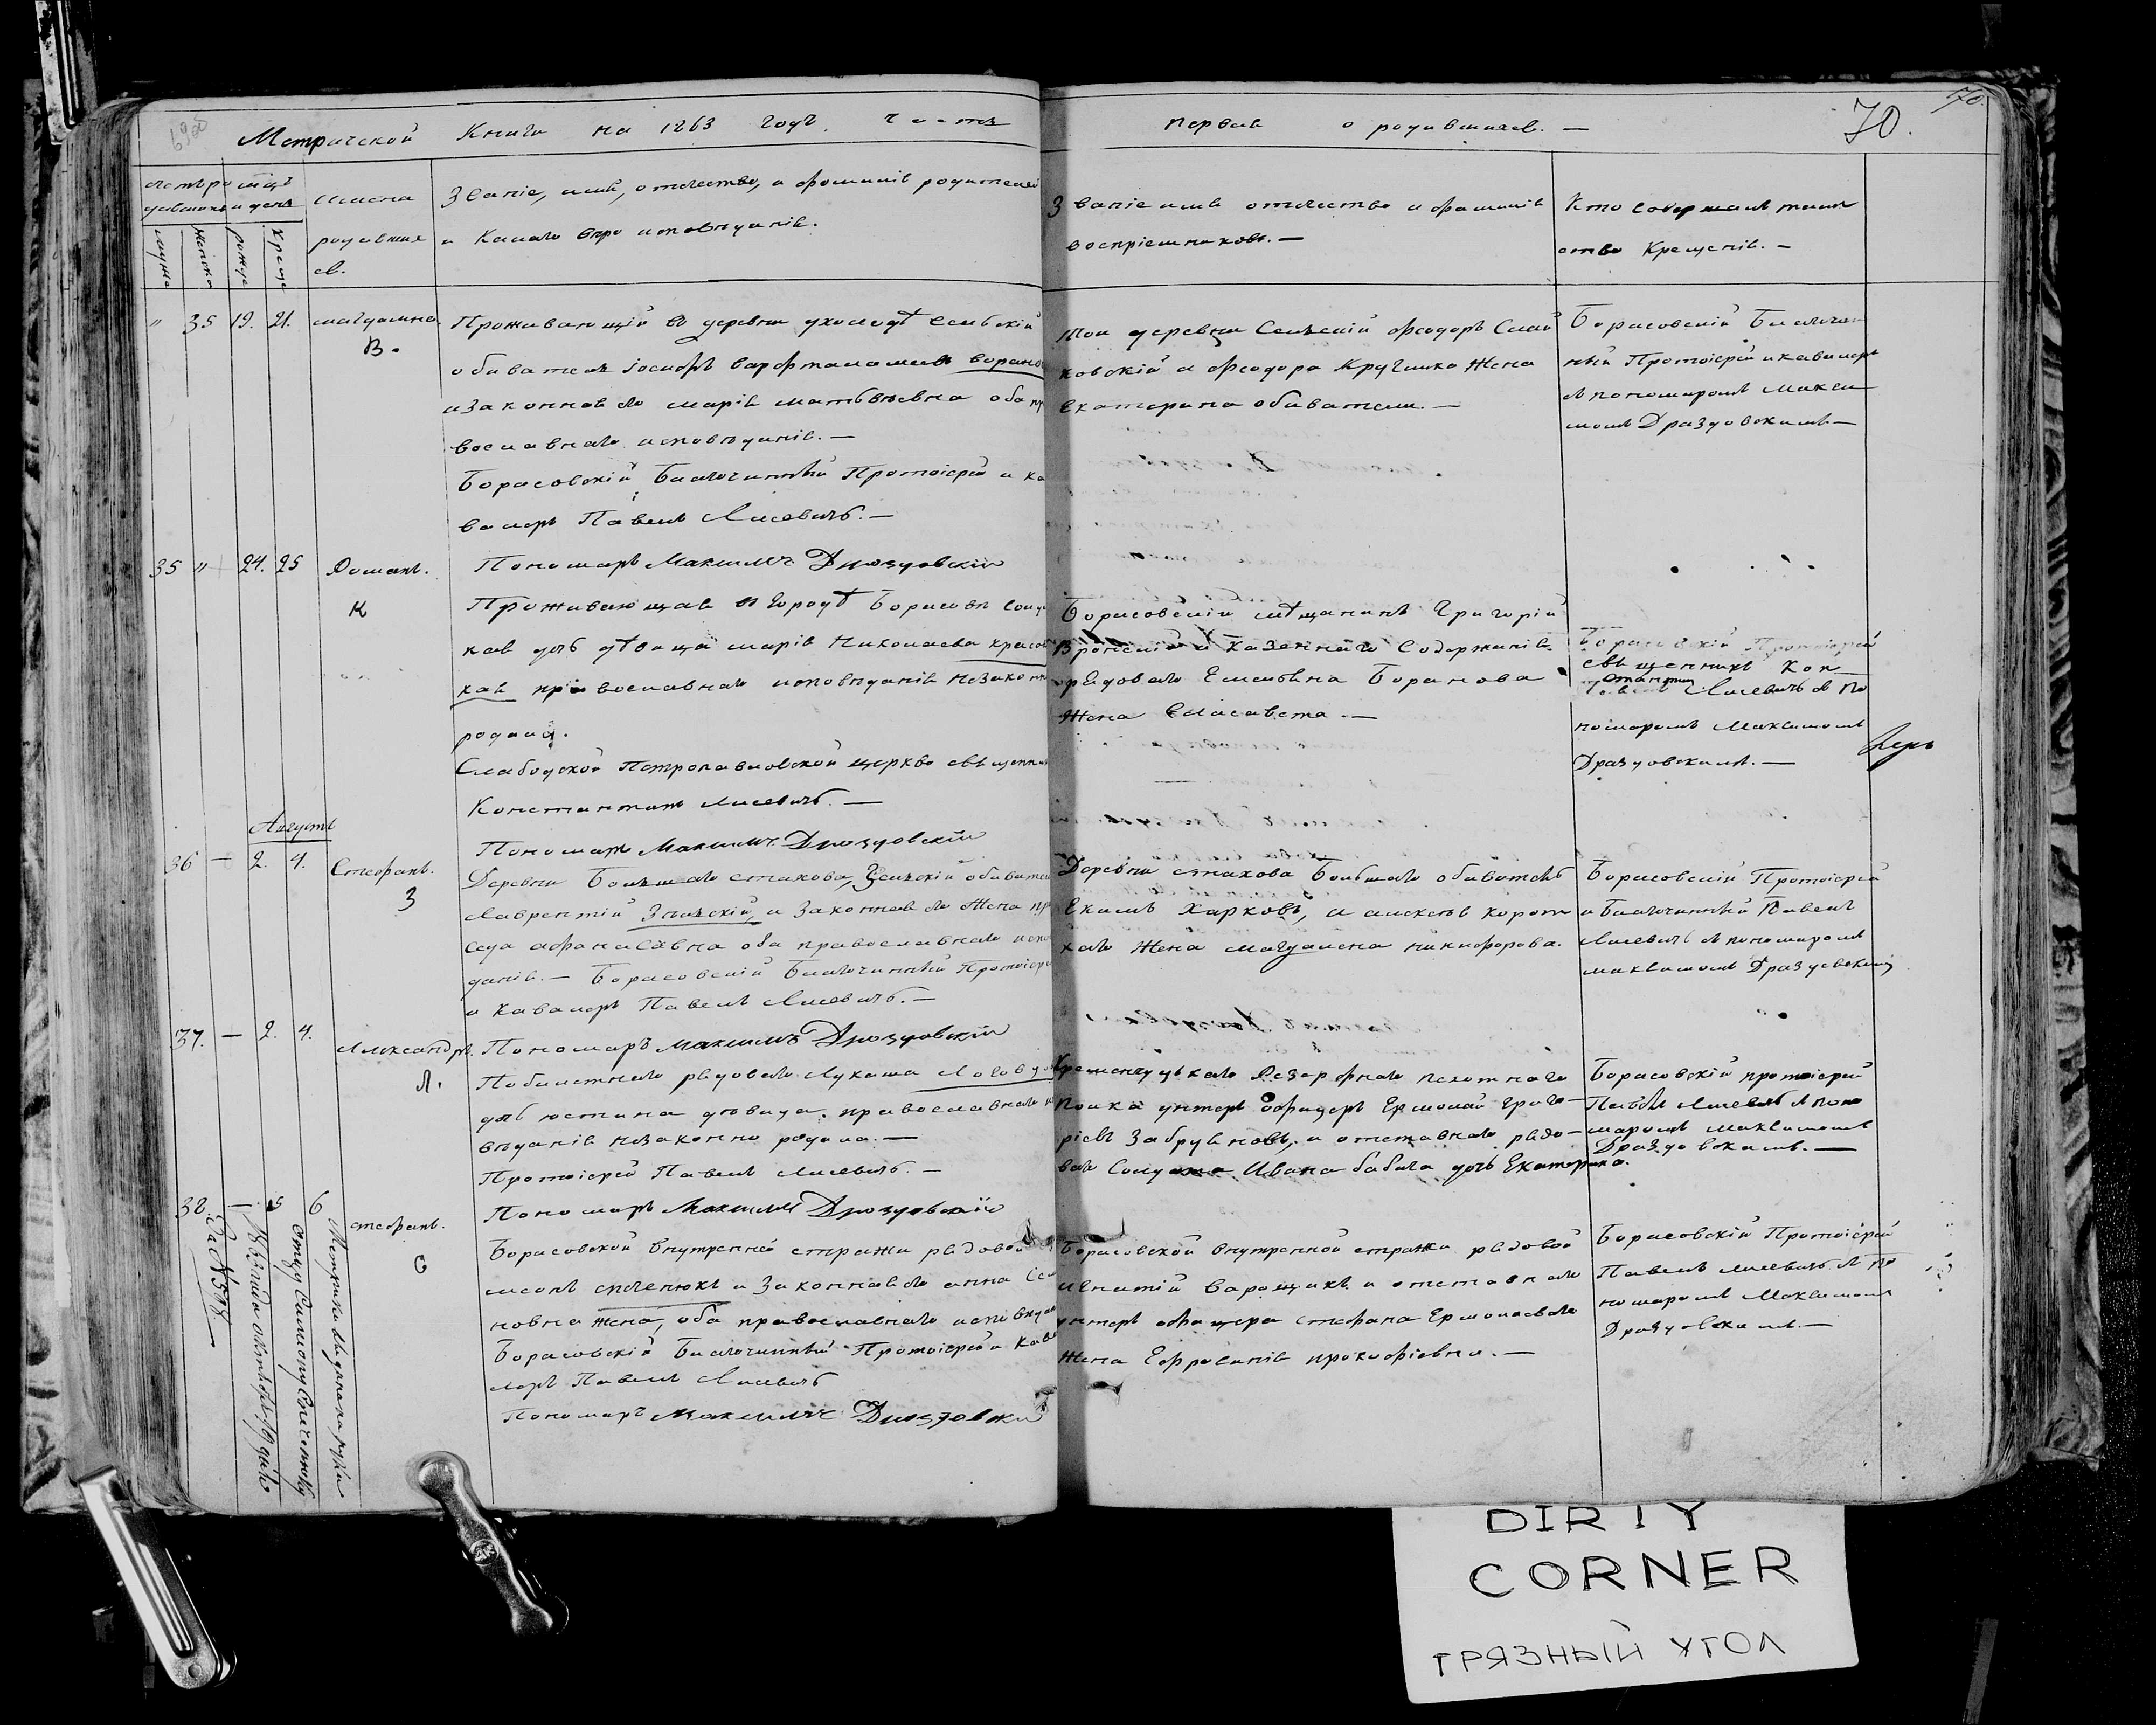 Метрической Книги на 1863 годъ. часть
первая о родившихся. —
70.
70.
Имена
родивших
ся.
Званіе, имя, отчество, и фамилія родителей
и какаго вѣро исповѣданія.
Званіе имя отчество и фамилія
воспріемниковъ. —
Кто совершалъ таин
ство Крещенія. —
мужа
женска
рожде
креще
" 35 19. 21.
Магдалина.
В.
Проживающій въ деревни Ухолодѣ Сельскій
обыватель Іосифъ Варфоламеевъ
и законная его Марія Матвѣевна оба пр
вославнаго исповѣданія. —
Борисовскій Благочинный Протоіерей и ка
валеръ Павелъ Лисевичъ. —
Пономарь Максимъ Дроздовскій
Той деревни Сельскій Феодоръ
ковскій и Феодора Кручинка жена
Екатерина обыватели. —
Борисовскій Благочин
ный Протоіерей и кавалеръ
съ пономаромъ Макси
момъ Драздовскимъ —
35 " 24. 25
Романъ.
К
Проживающая въ городѣ Борисовѣ
кая дѣвица Марія Николаева
кая православнаго исповѣданія незаконно
родила.
Слабодской Петропавловской церкви священни
Константинъ Лисевичъ. —
Пономарь Максимъ Дроздовскій
Борисовскій мѣщанинъ Григорій
и казеннаго содержанія
рядоваго Баранова
жена Елисавета. —
Борисовскій Протоіерей
священникъ Кон
стантин
Лисевичъ съ По
номаромъ Максимомъ
Драздовскимъ. —
Августъ
36 — 2. 4.
Стефанъ.
З
Деревни Большаго Стахова, Сельскій обывате
Лаврентій и законная его жена
Афанасьевна оба православнаго испо
данія. — Борисовскій Благочинный Протоіере
и Кавалеръ Павелъ Лисевичъ. —
Пономаръ Максимъ Дроздовскій
Деревни Стахова Большаго обыватель
Екимъ Харковъ, и Алексѣя корот
каго жена Магдалена Никифорова.
Борисовскій Протоіерей
и Благочинный Павелъ
Лисевичъ съ пономаромъ
Максимомъ Драздовскимъ
37. — 2. 4.
Александръ.
Л.
Побилетнаго рядоваго Лукаша
дчь Юстина дѣвица. православнаго и
вѣданія незаконно родила. —
Протоіерей Павелъ Лисевичъ. —
Пономаръ Максимъ Дроздовскій
Кременчуцкаго Резервнаго пехотнаго
полка унтеръ офицеръ Ермолай Григо—
рьевъ и отставнаго рядо—
ваго Солдата Ивана Бабича дочь Екатерина.
Борисовскій протоіерей
Павелъ Лисевичъ съ поно
маромъ Максимомъ
Драздовскимъ. —
38. — 5 6
Стефанъ.
С
Борисовской внутренней стражи рядовой
и законная его Анна Се
новна жена, оба православнаго исповѣдан
Борисовскій Благочинный Протоіерей и Кава
леръ Павелъ Лисевичъ
Пономаръ Максимъ Дроздовскій
Борисовской внутренной стражи рядовой
Игнатій и отставнаго
унтеръ офицера Стефана Ермолаеваго
жена Ефросинія Прокофіевна. —
Борисовскій Протоіерей
Павелъ Лисевичъ съ по
номаромъ Максимомъ
Драздовскимъ. —
Метрика выдана на руки
DIRTY
CORNER
ГРЯЗНЫЙ УГОЛ